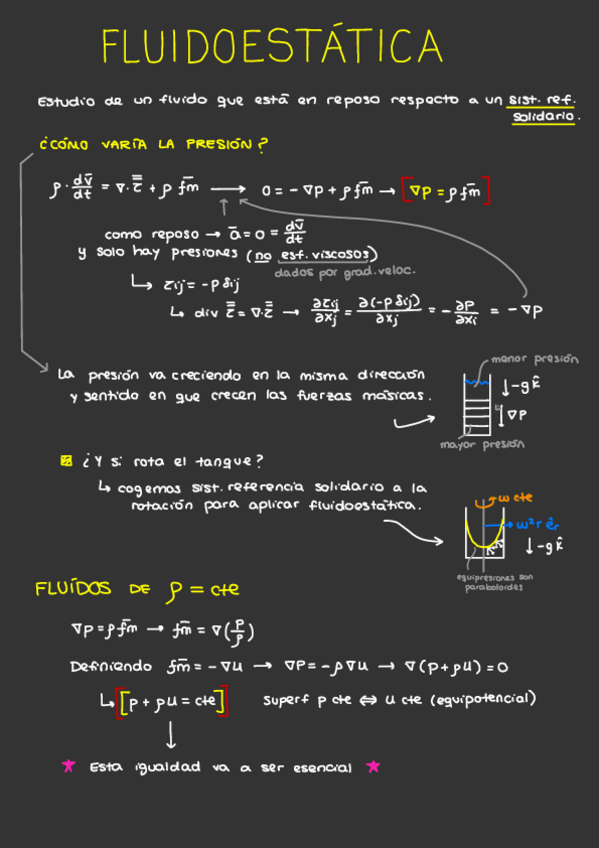 FLUIDOESTÁTICA
Estudio de un fluido que está en reposo respecto a un sist. ref.
solidario.
¿CÓMO VARÍA LA PRESIÓN?
ρ · dv̄/dt = ∇·τ̿ + ρ f̄m → 0 = -∇p + ρ f̄m → [∇p = ρ f̄m]
como reposo → ā = 0 = dv̄/dt
y solo hay presiones (no esf. viscosos)
dados por grad. veloc.
↳ τij = -p δij
↳ div τ̿ = ∇·τ̿ → ∂τij/∂xj = ∂(-p δij)/∂xj = -∂p/∂xi = -∇p
La presión va creciendo en la misma dirección
y sentido en que crecen las fuerzas másicas.
menor presión
↓ -g k̂
↓ ∇p
mayor presión
¿Y si rota el tanque?
↳ cogemos sist. referencia solidario a la
rotación para aplicar fluidoestática.
ω cte
ω²r êr
↓ -g k̂
equipresiones son
paraboloides
FLUÍDOS DE ρ = cte
∇p = ρ f̄m → f̄m = ∇(p/ρ)
Definiendo f̄m = -∇u → ∇p = -ρ∇u → ∇(p + ρu) = 0
↳ [p + ρu = cte] Superf p cte ⇔ u cte (equipotencial)
★ Esta igualdad va a ser esencial ★